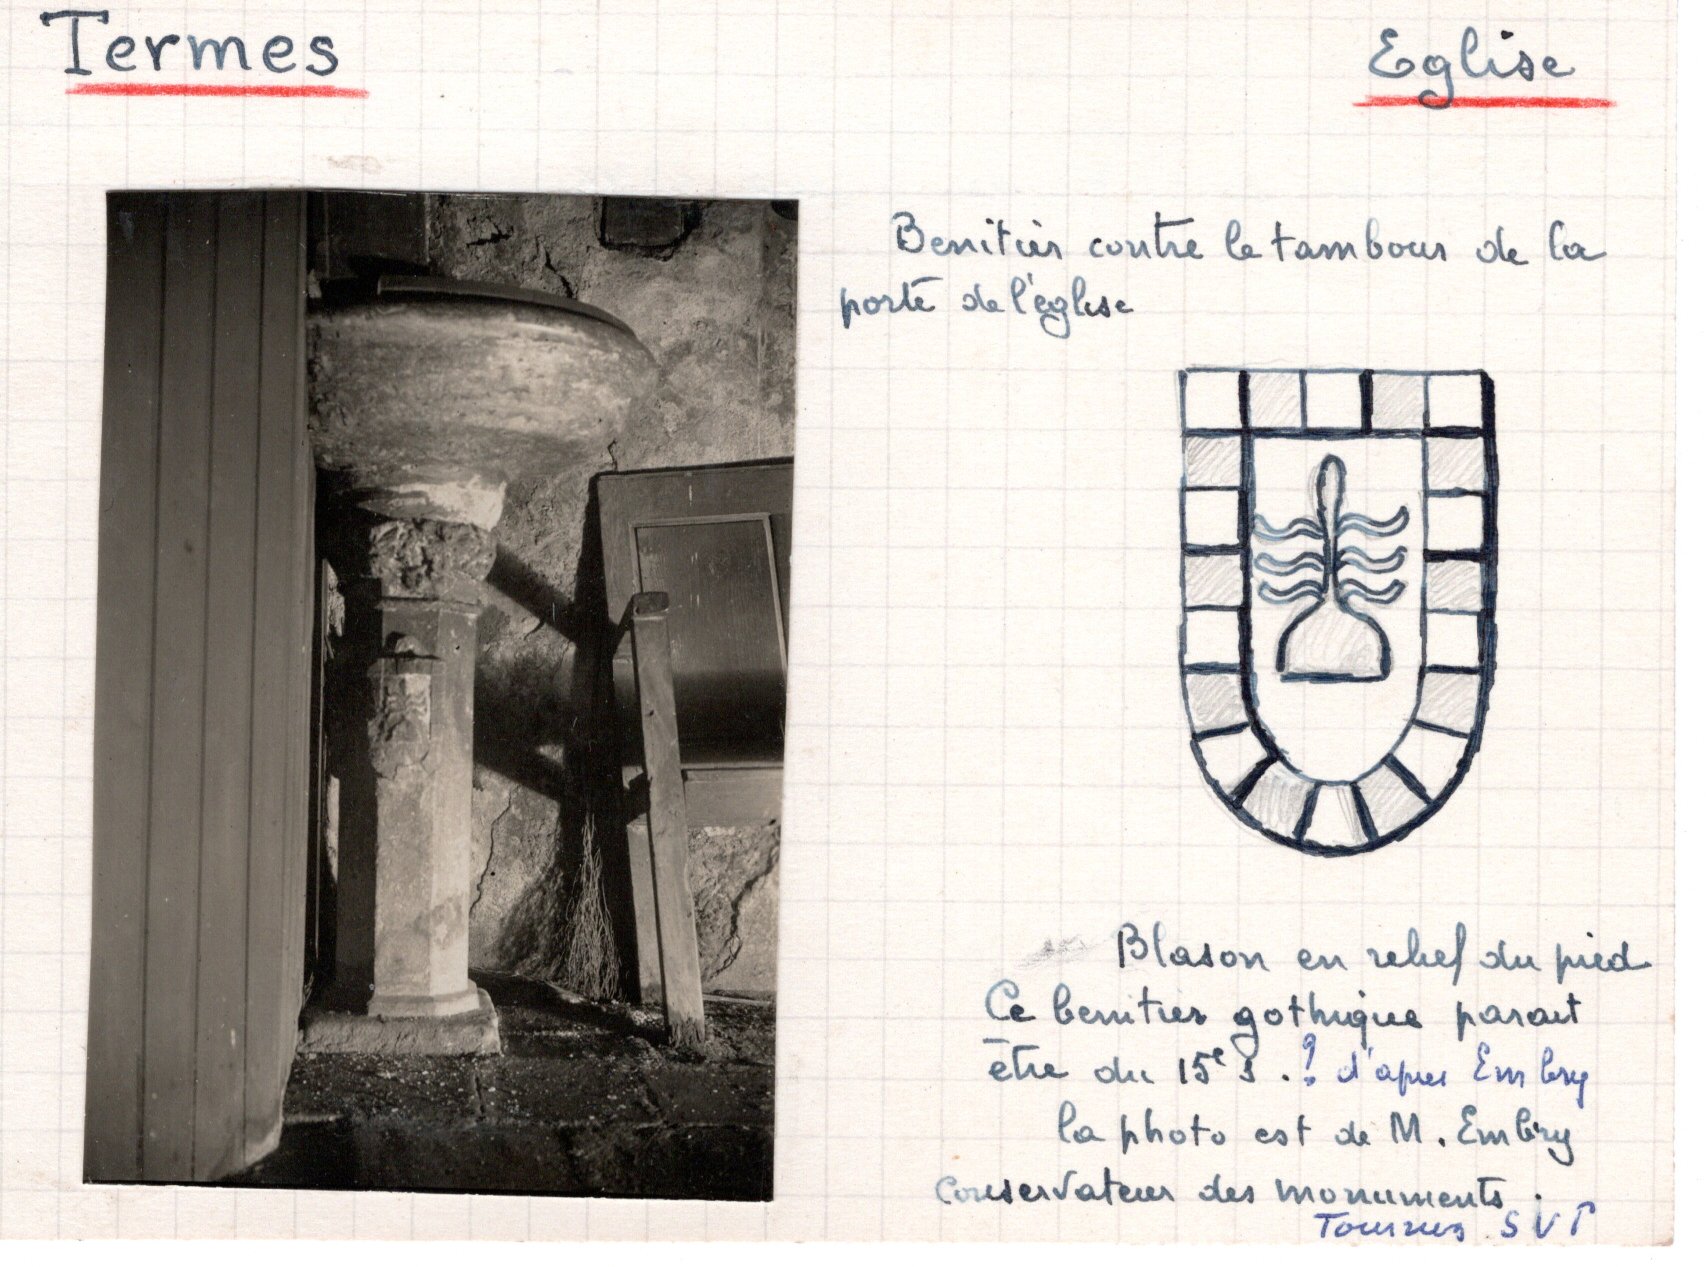 Termes
Eglise
Benitier contre le tambour de la
porte de l'église
Blason en relief du pied
Ce benitier gothique parait
être du 15e s. ? d'apres Embry
la photo est de M. Embry
conservateur des monuments.
Tournez S V P